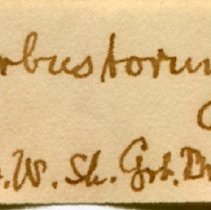 rbustorum
. W. Sh. Grt. Br